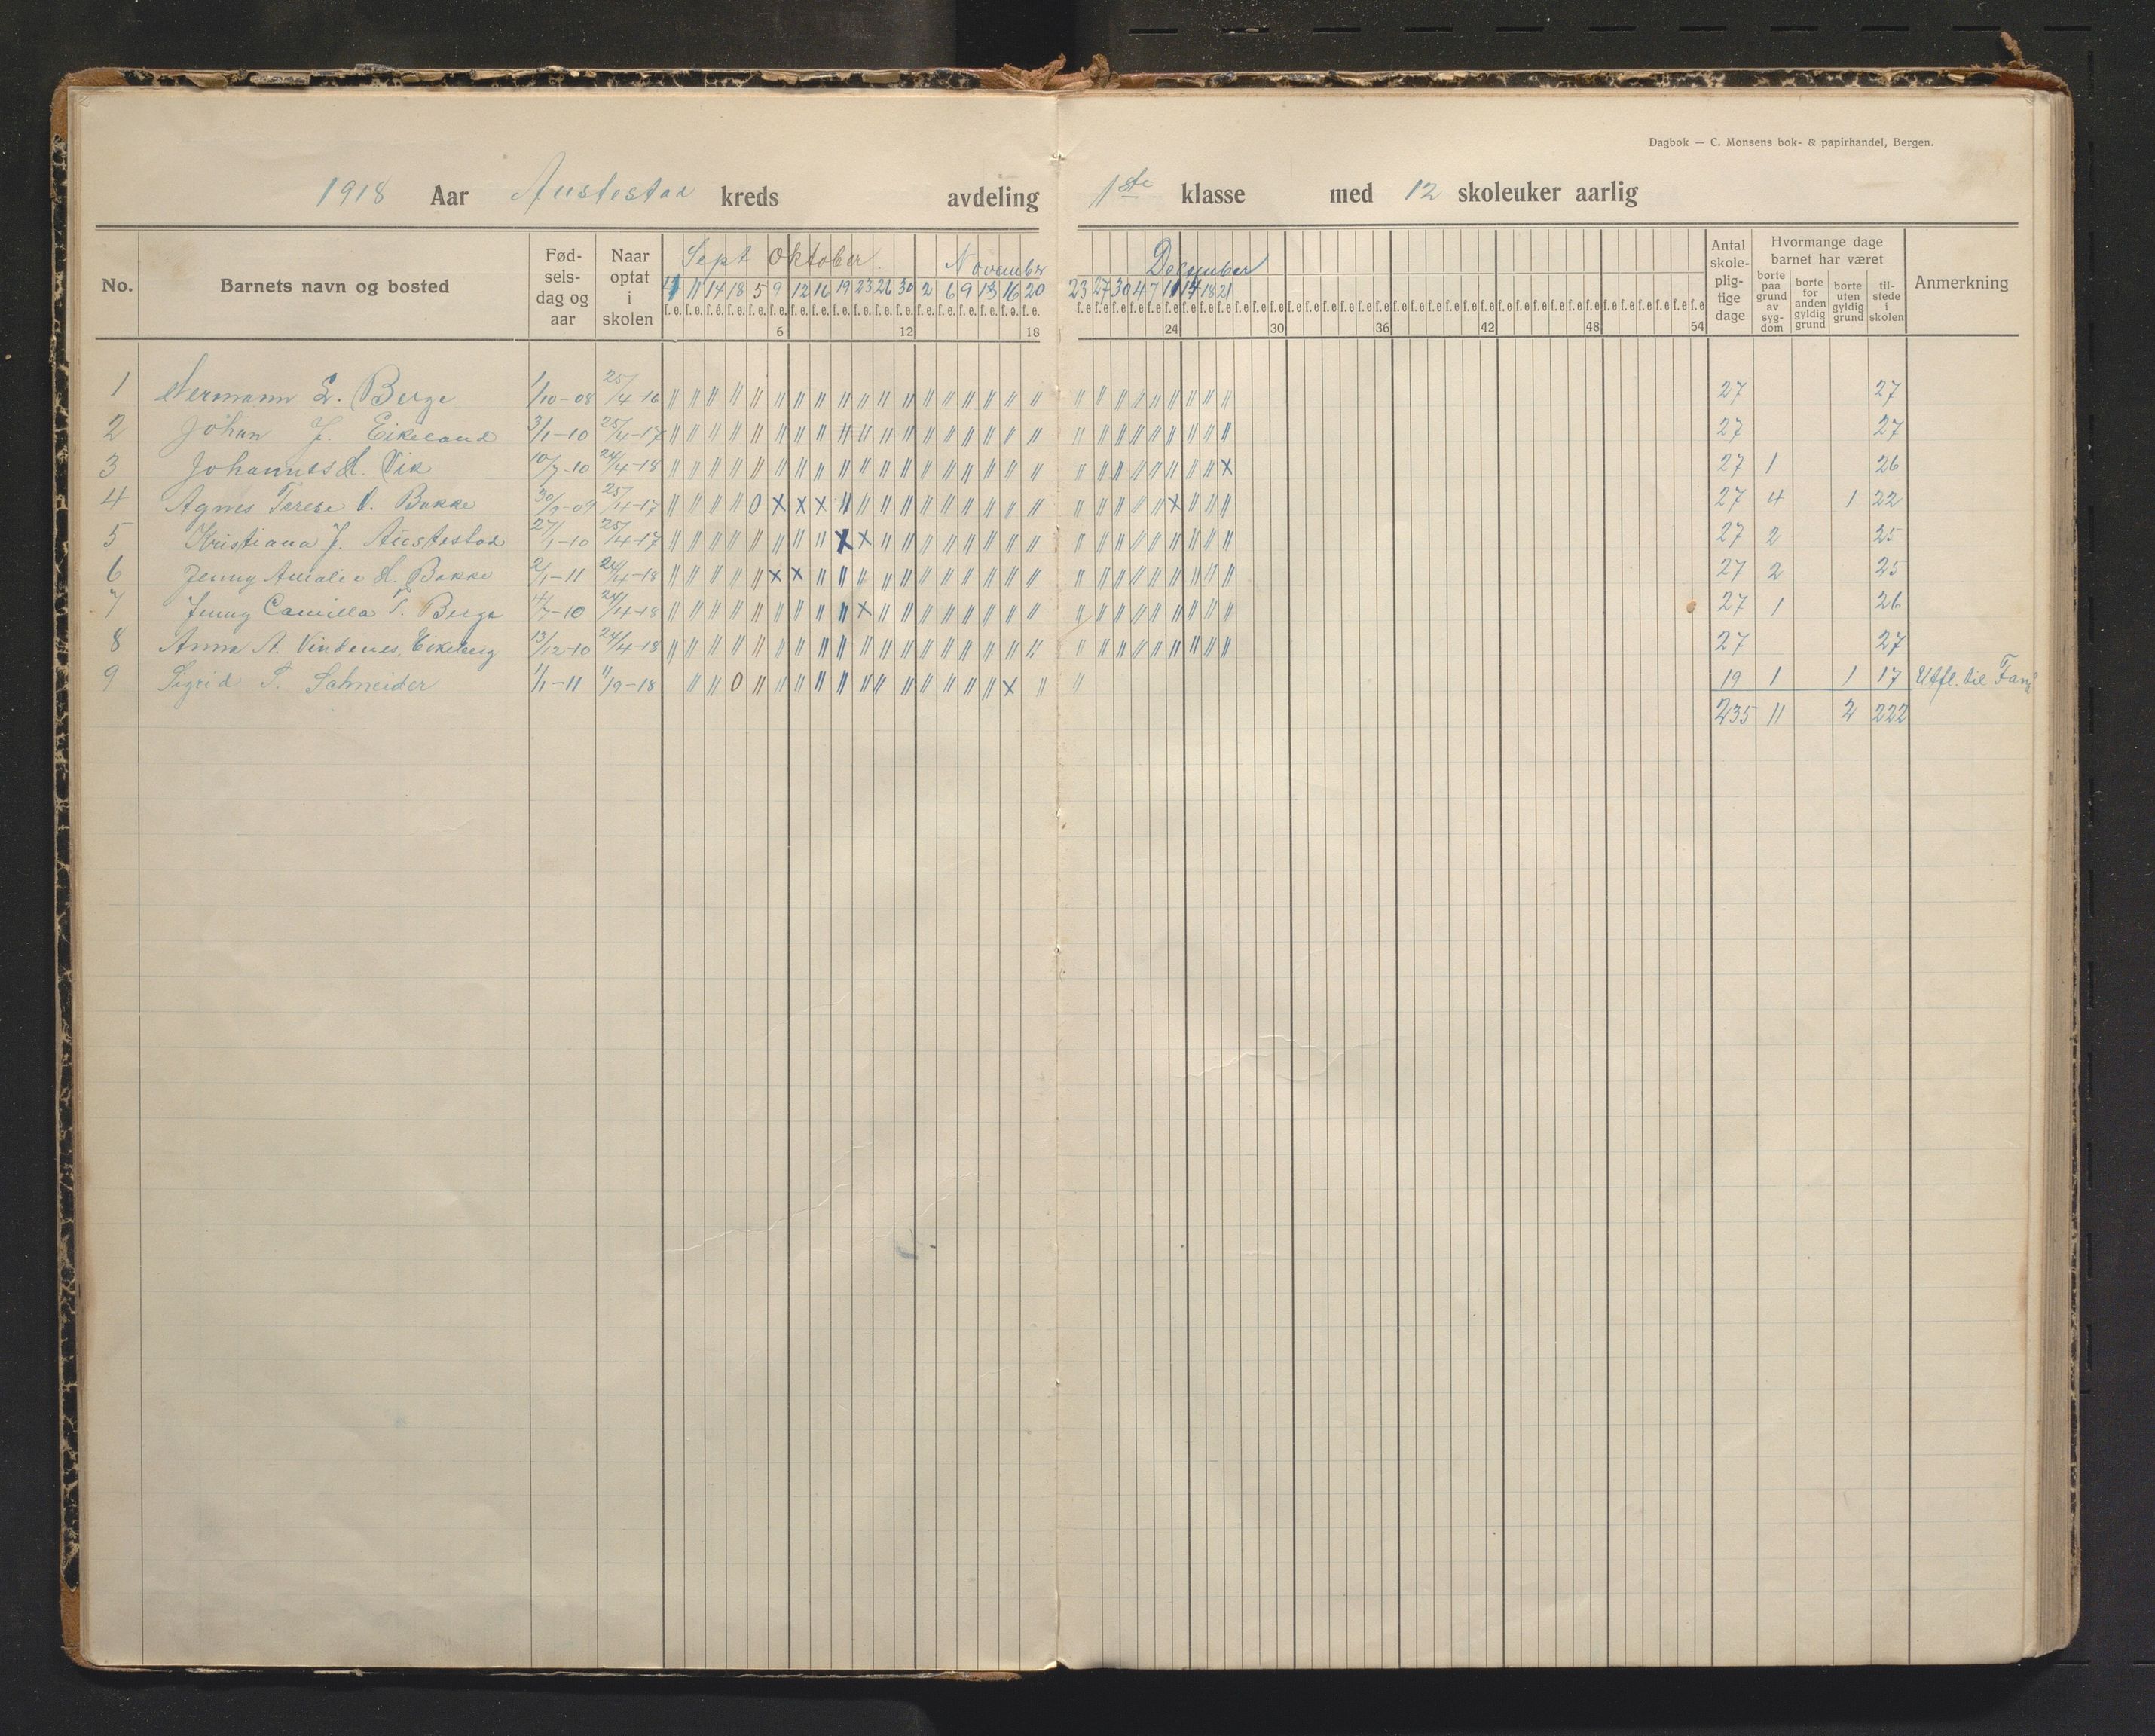 Dagbok — C. Monsens bok- & papirhandel, Bergen.
1918 Aar Austestad kreds avdeling 1ste klasse med 12 skoleuker aarlig
No. Barnets navn og bosted Fød-sels-dag og aar Naar optat i skolen Sept Oktober November December Antal skole-plig-tige dage Hvormange dage barnet har været Anmerkning
borte paa grund av syg-dom borte for anden gyldig grund borte uten gyldig grund til-stede i skolen
11 14 18 5 9 12 16 19 23 26 30 2 6 9 13 16 20 23 27 30 4 7 11 14 18 21
f. e. f. e. f. e. f. e. f. e. f. e. f. e. f. e. f. e. f. e. f. e. f. e. f. e. f. e. f. e. f. e. f. e. f. e.
6 12 18 24 30 36 42 48 54
1 Hermann L. Berge 1/10-08 25/4-16 27 27
2 Johan J. Eikeland 3/1-10 25/4-17 27 27
3 Johannes H. Vik 10/7-10 24/4-18 27 1 26
4 Agnes Terese O. Bakke 30/9-09 25/4-17 27 4 1 22
5 Kristiana J. Austestad 27/1-10 25/4-17 27 2 25
6 Jenny Amalie H. Bakke 2/1-11 24/4-18 27 2 25
7 Jenny Camilla T. Berge 4/7-10 24/4-18 27 1 26
8 Anna A. Vindenes, Eikeberg 13/12-10 24/4-18 27 27
9 Sigrid T. Schneider 1/1-11 11/9-18 19 1 1 17 Utfl. til Fana
235 11 2 222